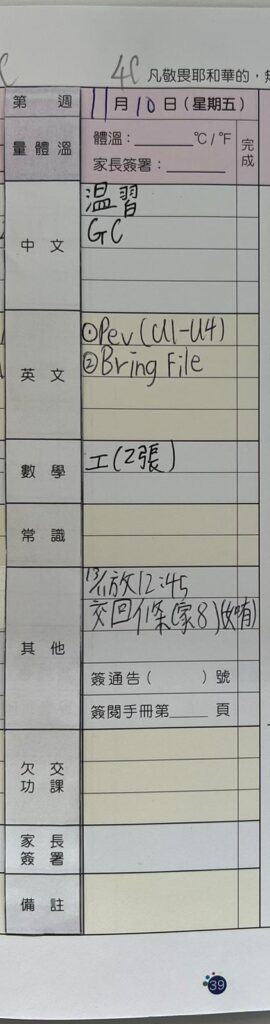 4C 凡敬畏耶和華的，
第 週 11月10日(星期五)
量體溫 體溫：______℃/℉ 完成
家長簽署：______
中文 温習
GC
英文 ①Rev (U1-U4)
②Bring File
數學 工(2張)
常識
其他 13/11放12:45
交回條(家8)(如有)
簽通告( )號
簽閱手冊第____頁
欠交功課
家長簽署
備註
39